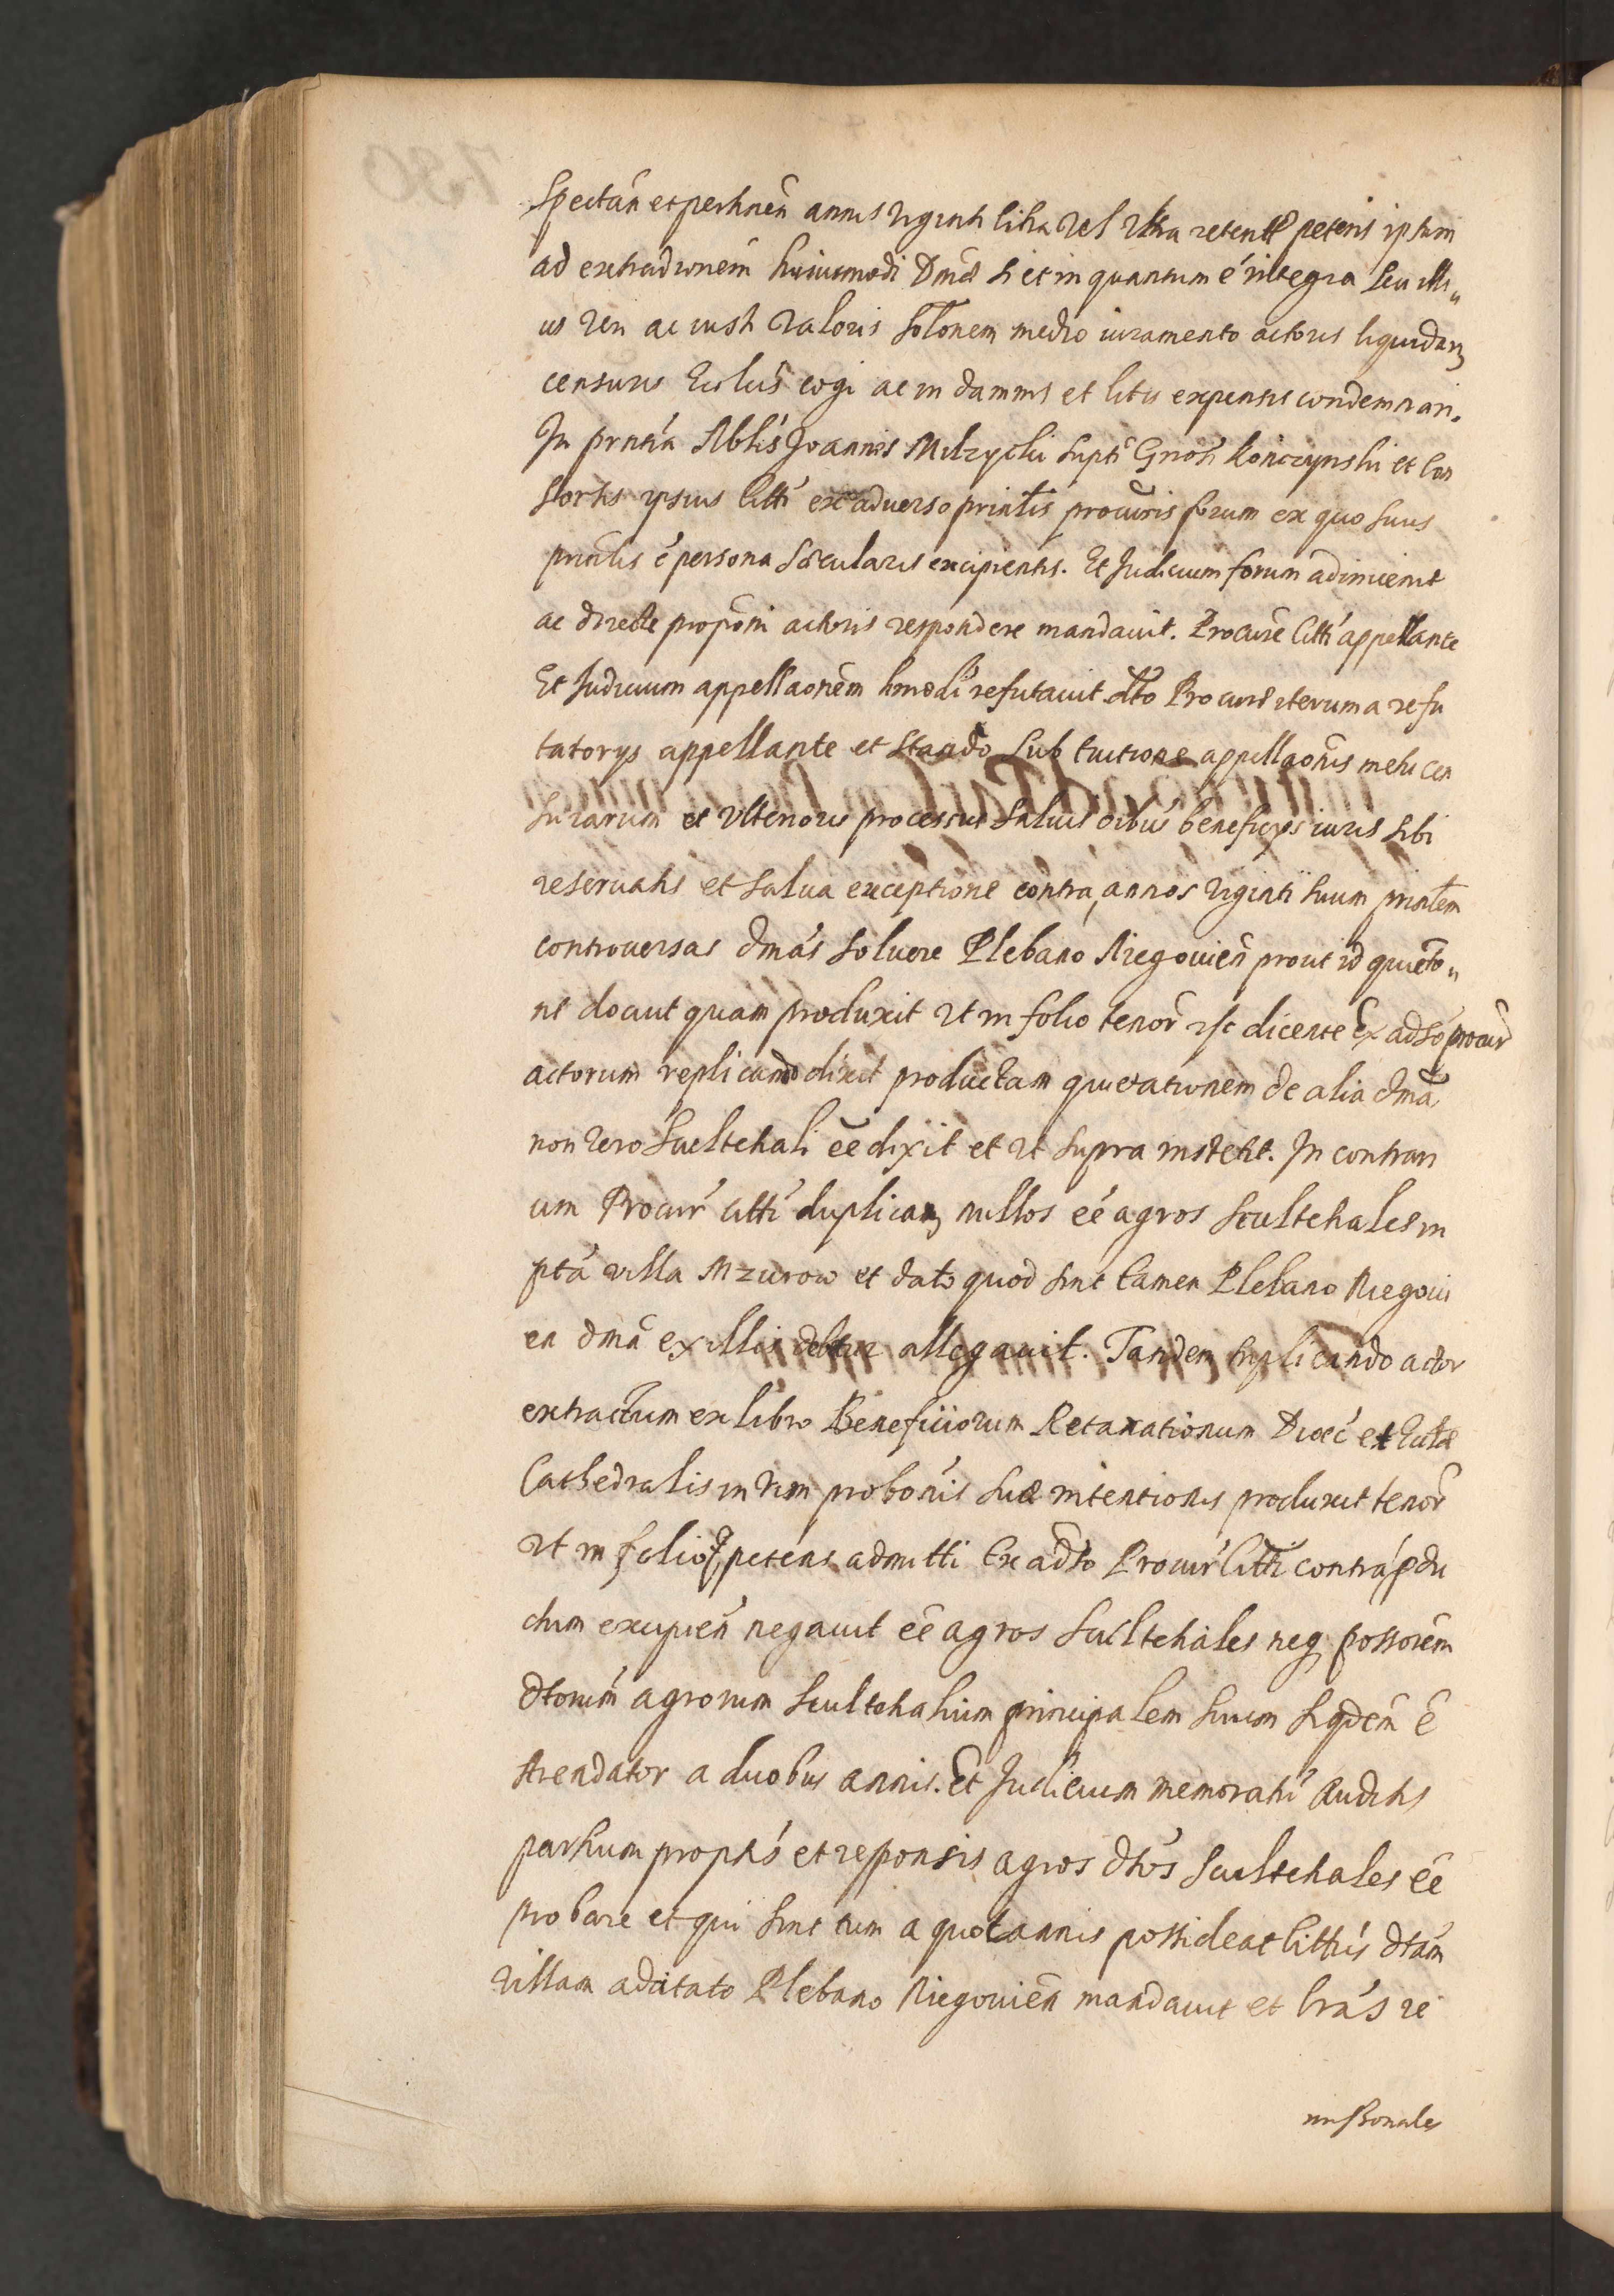 Spectan̄ et pertinen̄ annis viginti citra vel ultra retentæ petens ipsum
ad extraditionem huiusmodi Dmæ si et in quantum é integra seu illi„
us veri ac iusti valoris soľonem medio iuramento actoris liquidan̄
censuris Ecclus̄ cogi ac in damnis et litis expensis condemnari.
In pn̄tia Nblis Joannis Milzycki supti Gnosi Konczynski et Con
sortis ipsius Citti ex adverso prin̄lis procuris forum ex quo suus
prin̄lis é persona Sæcularis excipientis. Et Judicium forum adinvenit
ac directe propōni actoris respondere mandavit. Procure Citti appellante
Et Judicium appellaonēm hmodi refutavit Dto Procure iterum a refu
tatorys appellante et stando sub tuitione appellaonis metu cen
surarum et ulterioris processus Salvis oibus beneficys iuris sibi
reservatis et salva exceptione contra, annos viginti suum prin̄lem
controversas dmas solvere Plebano Niegovien̄ prout id quietō„
ne docuit quam produxit ut in folio tenor̄ dicente Ex adso procur̄
actorum replicando dixit productam quietationem de alia dma,
non vero Scultetiali eē dixit et ut supra institit. In contrari
um Procur̄ citti duplican̄ nullos eé agros Scultetiales in
pta villa Mzurow et dato quod sint tamen Plebano Niegovi
en dmā ex illis deberi allegavit. Tandem triplicando actor
extractum ex libro Beneficiorum Retaxationum Diœc̄ et Ecclæ
Cathedralis in vim probōnis suæ intentionis produxit tenor̄
ut in folio petens admitti Ex adso Procur̄ Citti contra pdu
ctum excipien̄ negavit eē agros Scultetiales neq possorēm
dtorum agrorum Scultetialium principalem suum siqdem ē
Arendator a duobus annis. Et Judicium memorati auditis
partium proptis et responsis agros dtos Scultetiales eē
probare et qui sint tum a quot annis possideat Cittus dtām
villam adcitato Plebano Niegovien̄ mandavit et lrās re
missionales